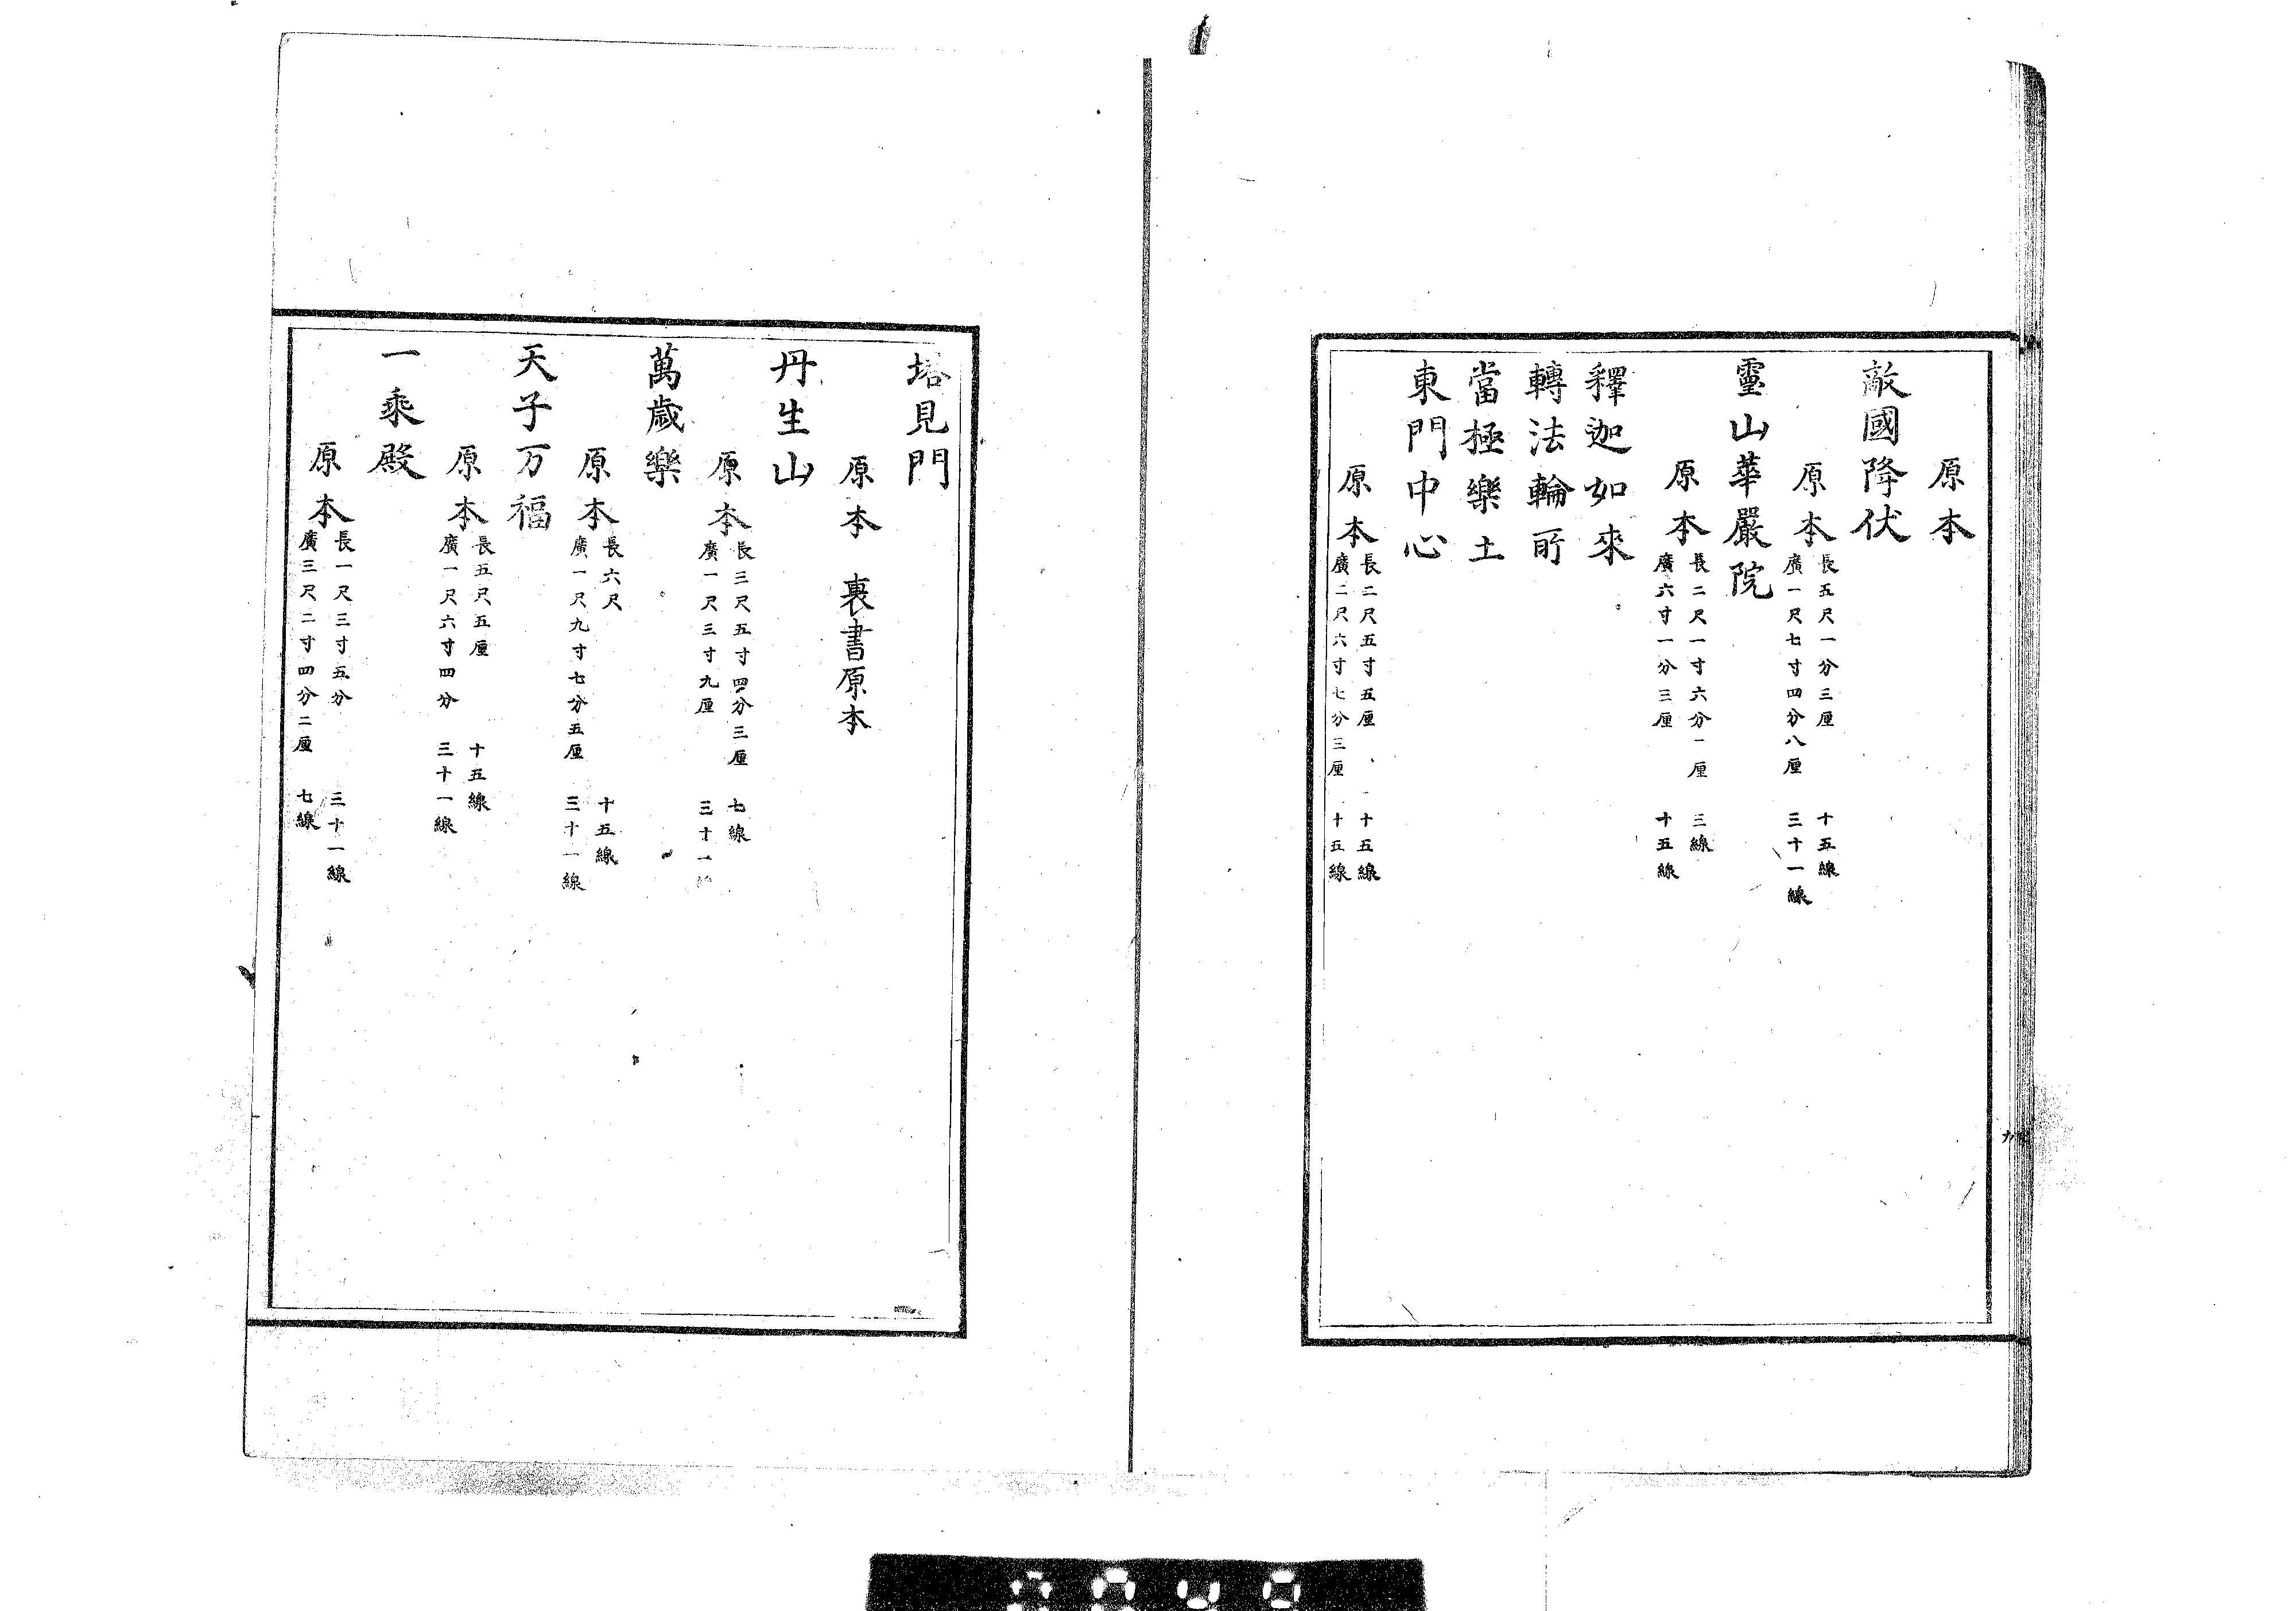 原本
敵國降伏
原本
長五尺一分三厘　十五線
廣一尺七寸四分八厘　三十一線
靈山華嚴院
原本
長二尺一寸六分一厘　三線
廣六寸一分三厘　十五線
釋迦如來
轉法輪所
當極樂土
東門中心
原本
長二尺五寸五厘　十五線
廣二尺六寸七分三厘　十五線
塔見門
原本　裏書原本
丹生山
原本
長三尺五寸四分三厘　七線
廣一尺三寸九厘　三十一
萬歲樂
原本
長六尺　十五線
廣一尺九寸七分五厘　三十一線
天子万福
原本
長五尺五厘　十五線
廣一尺六寸四分　三十一線
一乘殿
原本
長一尺三寸五分　三十一線
廣三尺二寸四分二厘　七線